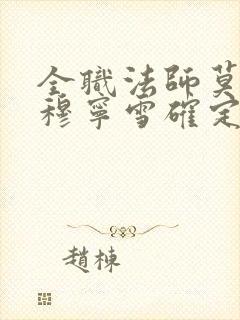 全職法師莫
穆寧雪確定
趙棟